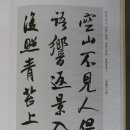 空山不見人但
語響返景入
復照青苔上